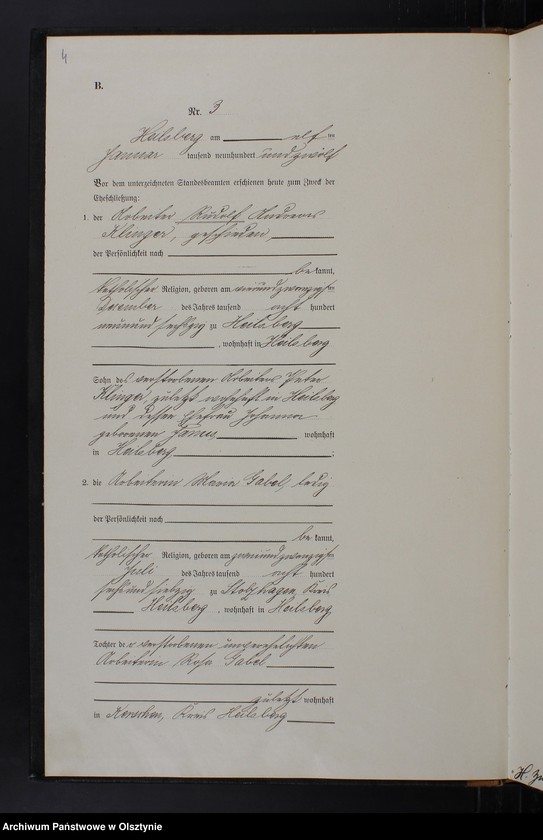 4
B.
Nr. 3
Heilsberg am elf ten
Januar tausend neunhundert und zwölf
Vor dem unterzeichneten Standesbeamten erschienen heute zum Zweck der
Eheschließung:
1. der Arbeiter Rudolf Andreas
Klinger, geschieden
der Persönlichkeit nach
be kannt,
katholischer Religion, geboren am vierundzwanzigsten
Dezember des Jahres tausend acht hundert
neunundsechzig zu Heilsberg
, wohnhaft in Heilsberg
Sohn des verstorbenen Arbeiters Peter
Klinger, zuletzt wohnhaft in Heilsberg
und dessen Ehefrau Johanna
geborenen wohnhaft
in Heilsberg ;
2. die Arbeiterin Maria Gabel, ledig
der Persönlichkeit nach
be kannt,
katholischer Religion, geboren am zweiundzwanzigsten
Juli des Jahres tausend acht hundert
sechsundsiebzig zu Stolzhagen, Kreis
Heilsberg , wohnhaft in Heilsberg
Tochter der verstorbenen unverehelichten
Arbeiterin Rosa Gabel
zuletzt wohnhaft
in Kerschen, Kreis Heilsberg
Archiwum Państwowe w Olsztynie